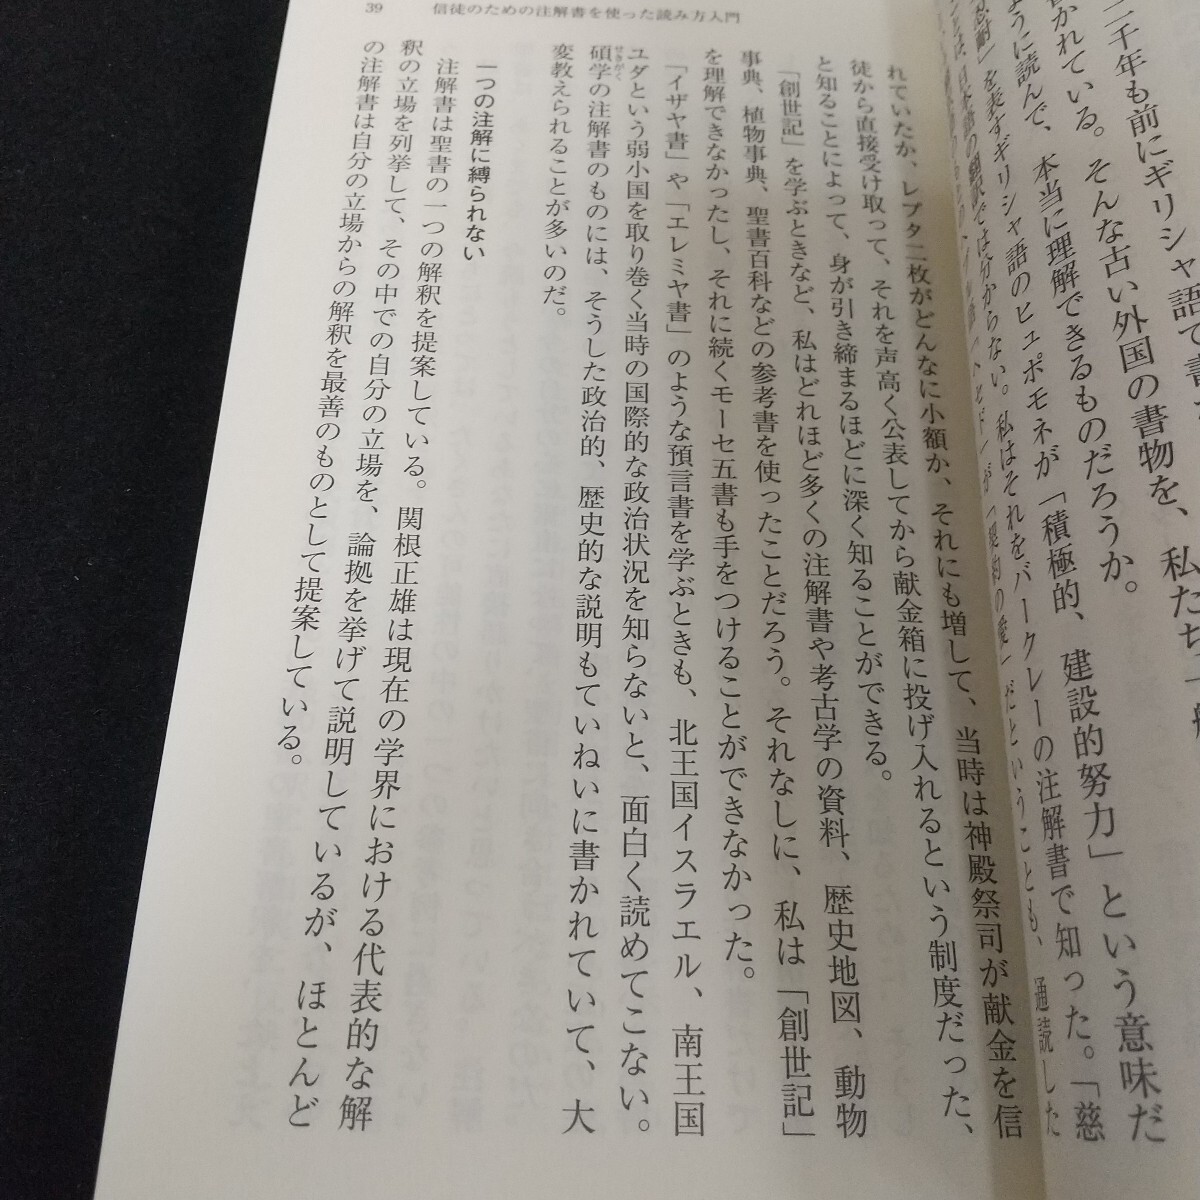 39　信徒のための注解書を使った読み方入門
二千年も前にギリシャ語で書
かれている。そんな古い外国の書物を、私たち一般
ように読んで、本当に理解できるものだろうか。
を表すギリシャ語のヒュポモネが「積極的、建設的努力」という意味だ
分からない。私はそれをバークレーの注解書で知った。「慈
だということも、通読した
れていたか、レプタ二枚がどんなに小額か、それにも増して、当時は神殿祭司が献金を信
徒から直接受け取って、それを声高く公表してから献金箱に投げ入れるという制度だった、
と知ることによって、身が引き締まるほどに深く知ることができる。
「創世記」を学ぶときなど、私はどれほど多くの注解書や考古学の資料、歴史地図、動物
事典、植物事典、聖書百科などの参考書を使ったことだろう。それなしに、私は「創世記」
を理解できなかったし、それに続くモーセ五書も手をつけることができなかった。
「イザヤ書」や「エレミヤ書」のような預言書を学ぶときも、北王国イスラエル、南王国
ユダという弱小国を取り巻く当時の国際的な政治状況を知らないと、面白く読めてこない。
碩学せきがくの注解書のものには、そうした政治的、歴史的な説明もていねいに書かれていて、大
変教えられることが多いのだ。
一つの注解に縛られない
注解書は聖書の一つの解釈を提案している。関根正雄は現在の学界における代表的な解
釈の立場を列挙して、その中での自分の立場を、論拠を挙げて説明しているが、ほとんど
の注解書は自分の立場からの解釈を最善のものとして提案している。